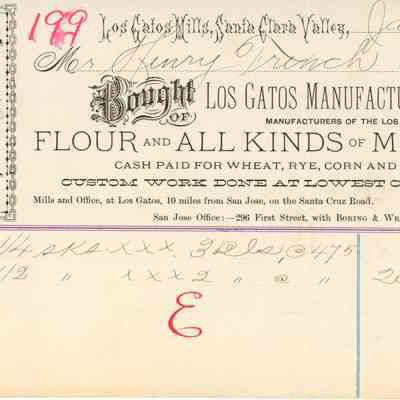 199 Los Gatos Mills, Santa Clara Valley, Ja
Mr Henry French
Bought OF LOS GATOS MANUFACTU
MANUFACTURERS OF THE LOS
FLOUR AND ALL KINDS OF M
CASH PAID FOR WHEAT, RYE, CORN AND
CUSTOM WORK DONE AT LOWEST C
Mills and Office, at Los Gatos, 10 miles from San Jose, on the Santa Cruz Road.
San Jose Office:—296 First Street, with BORING & WR
1/4 sks xxx. @ 475
1/2 " xxx2 " @ " 2
E